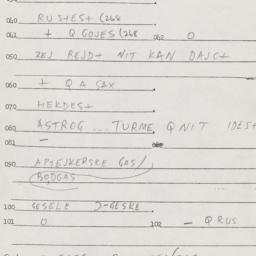 040 RUSTEST (268
041 + Q GOJES (268 042 O
050 ZEJ REJDT NIT KAN DAJCT
060 + Q A SAX
070 HEKDEST
080 ASTROG ... TURME Q NIT IDEST
081 —
090 APTEJKERSKE GAS/
BODGAS
100 GESELE J-GESKE
101 O 102 — Q RUS